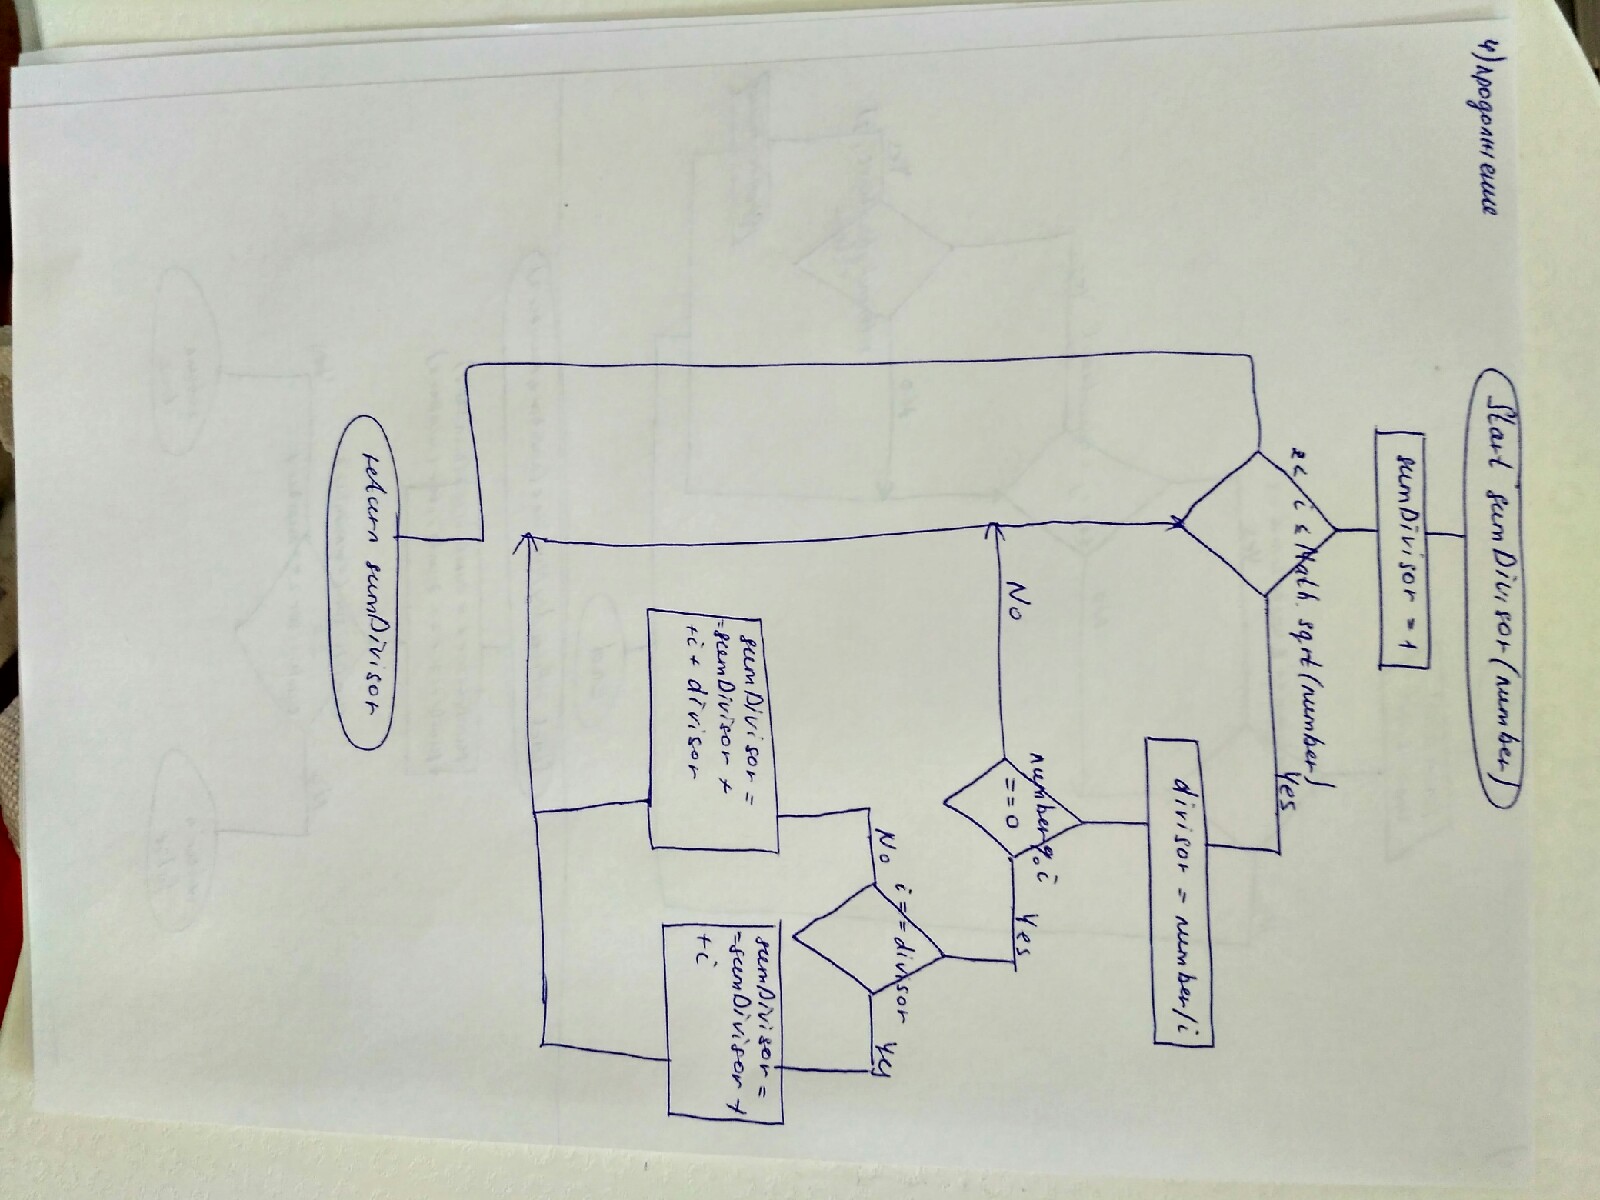 4) продолжение
Start sumDivisor(number)
sumDivisor = 1
2 < i ≤ Math.sqrt(number)
Yes
divisor = number/i
number % i
== 0
Yes
No
i == divisor
No
Yes
sumDivisor =
=sumDivisor +
+i + divisor
sumDivisor =
=sumDivisor +
+i
return sumDivisor